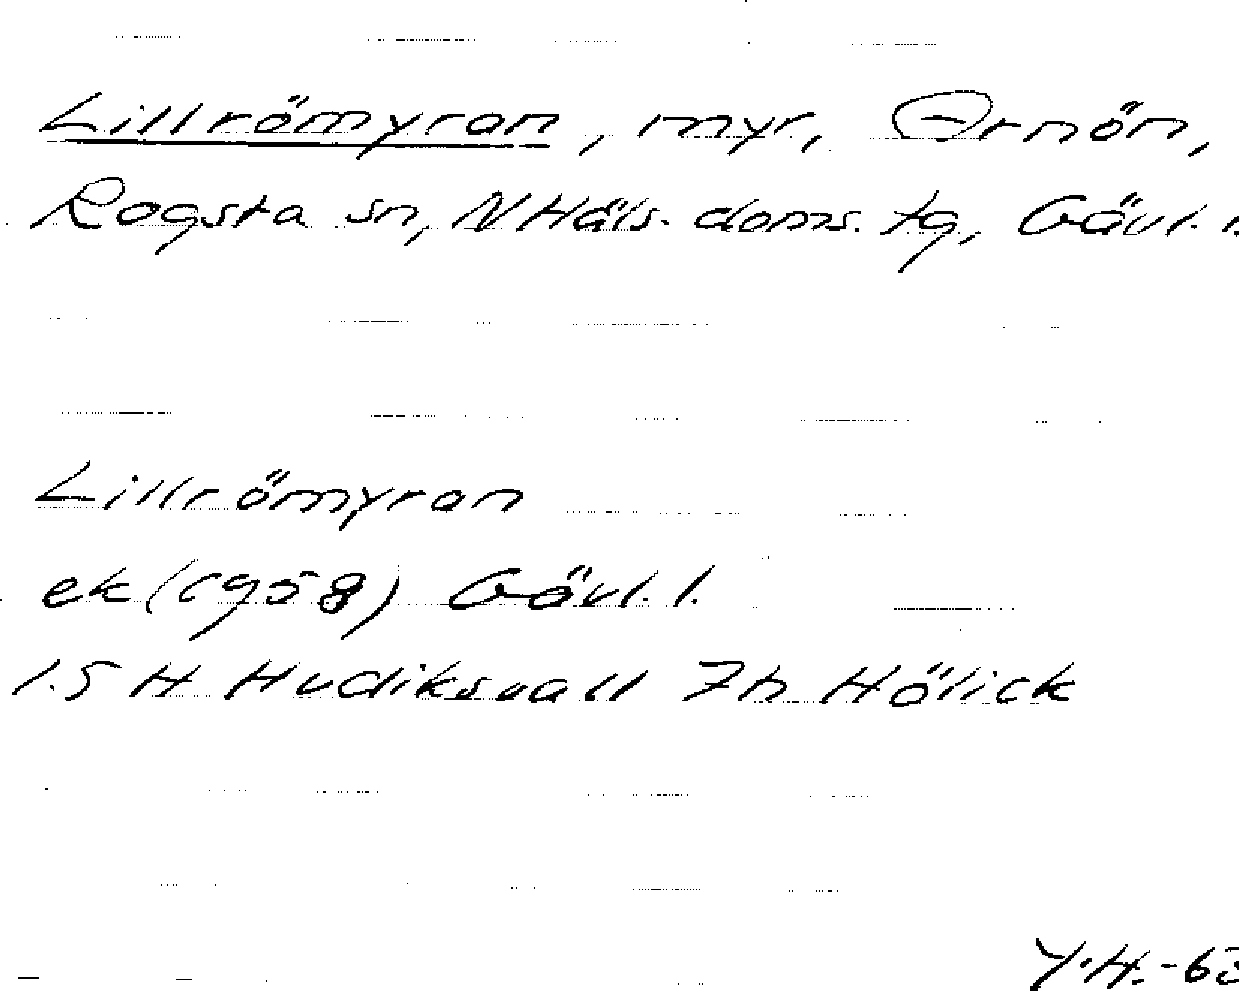 Lillrömyran, myr, Arnön,
Rogsta sn, N Häls. doms. tg, Gävl. l.
Lillrömyran
ek (1958) Gävl. l.
15 H Hudiksvall 7h Hölick
Y.H.-63